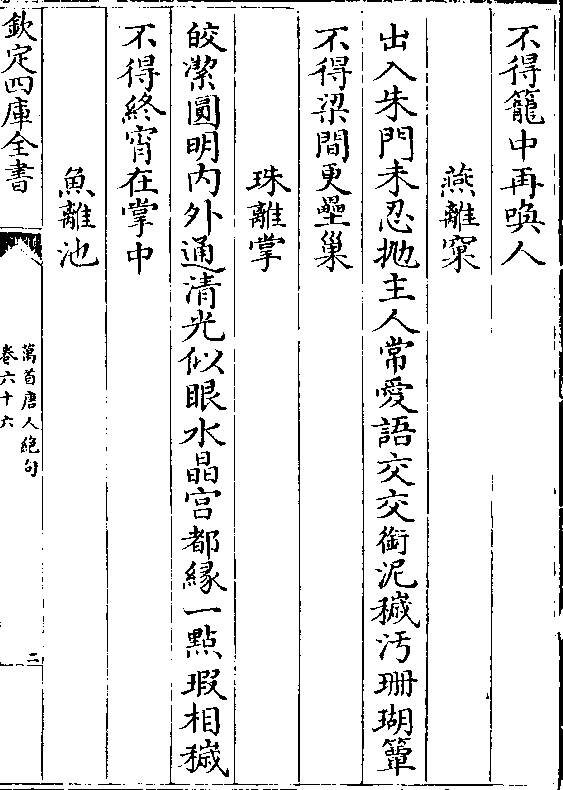 不得籠中再喚人
燕離窠
出入朱門未忍抛主人常愛語交交銜泥穢汚珊瑚簟
不得梁間更壘巢
珠離掌
皎潔圓明内外通清光似眼水晶宫都縁一點瑕相穢
不得終宵在掌中
魚離池
欽定四庫全書
萬首唐人絶句
卷六十六
二